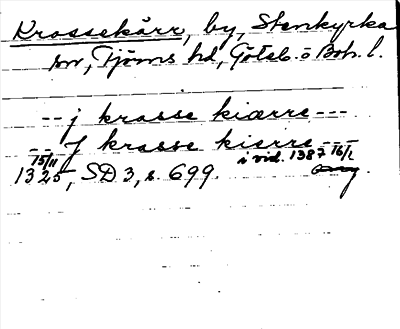 Krossekärr, by, Stenkyrka
sn, Tjörns hd, Göteb. o Boh. l.
-- j krosse kiærre ---
-- J krosse kierre ---
15/11 i vid. 1387 16/1
1325, SD 3, s. 699.